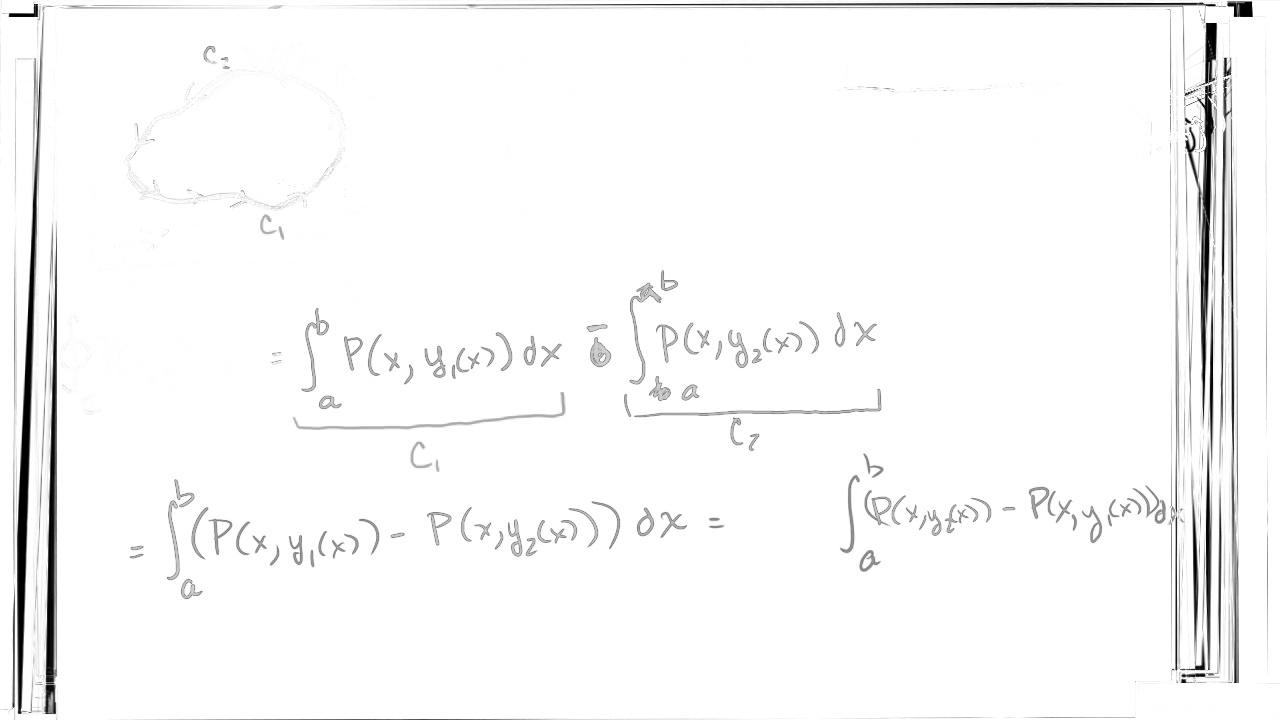 C₂
C₁
= ∫ₐᵇ P(x, y₁(x)) dx − ∫ₐᵇ P(x, y₂(x)) dx
C₁ C₂
= ∫ₐᵇ (P(x, y₁(x)) - P(x, y₂(x))) dx = ∫ₐᵇ (P(x, y₂(x)) - P(x, y₁(x))) dx